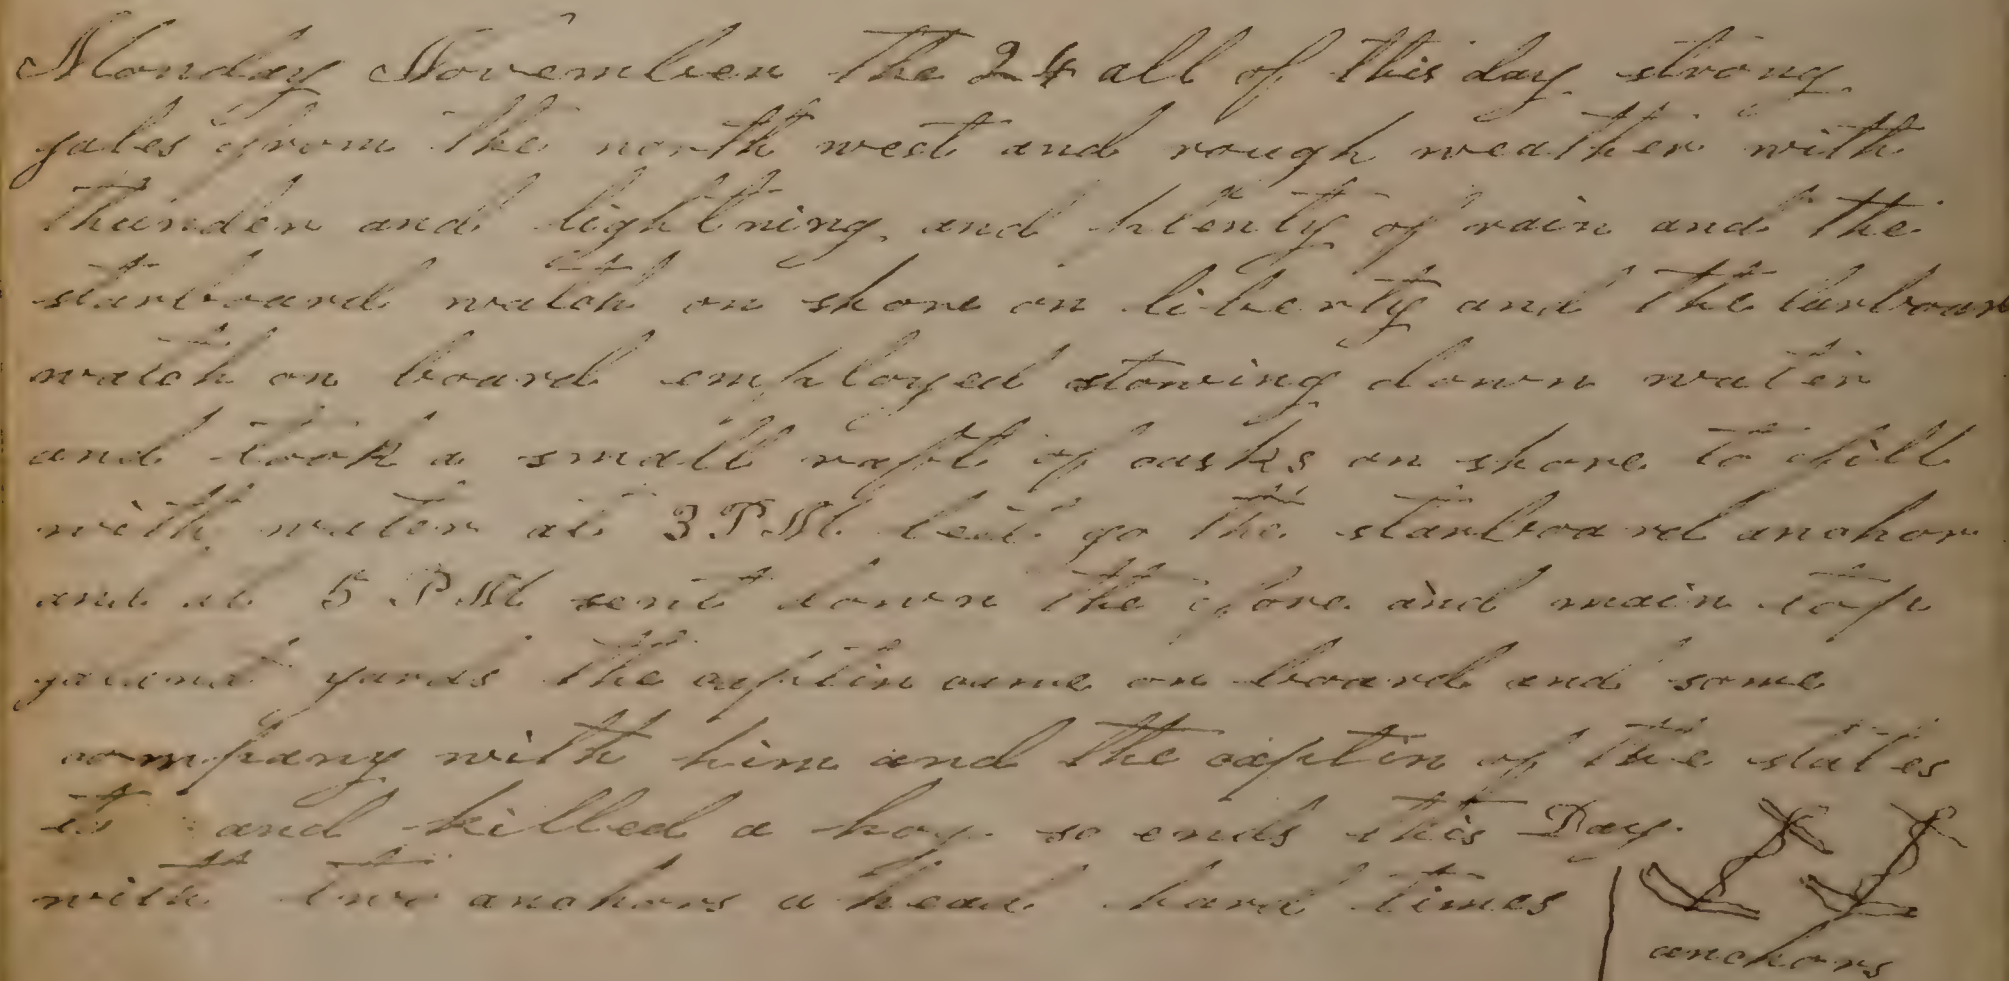 Monday November the 24 all of this day strong
gales from the north west and rough weather with
thunder and lightning and plenty of rain and the
starboard watch on shore on liberty and the larboard
watch on board employed stowing down water
and took a small raft of casks on shore to fill
with water at 3 PM let go the starboard anchor
and at 5 PM sent down the fore and main top
yards the captin came on board and some
company with him and the captin of the states
and killed a hog so ends this Day
with two anchors a head hard times
anchors